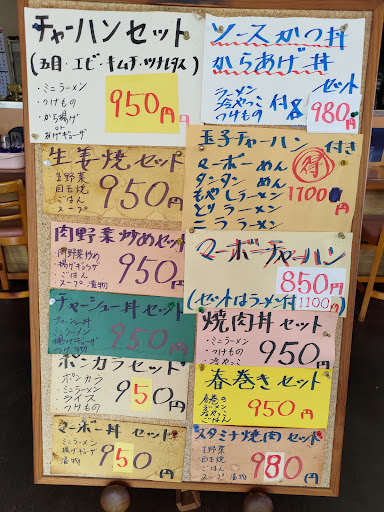 チャーハンセット
(五目・エビ・キムチ・ツナレタス)
・ミニラーメン
・つけもの
・から揚げ
or
あげギョーザ
950円
ソースかつ丼
からあげ丼
セット
ラーメン
冷やっこ
つけもの
付き
980円
生姜焼セット
生野菜
目玉焼
ごはん
スープ
950円
玉子チャーハン付き
マーボーめん
タンタンめん
もやしラーメン
ニララーメン
得
1100円
肉野菜炒めセット
肉野菜炒め
揚げギョーザ
ごはん
スープ 漬物
950円
マーボーチャーハン
850円
(セットはラーメン付1100円)
チャーシュー丼セット
チャーシュー丼
ミニラーメン
揚げギョーザ
漬物
950円
焼肉丼セット
・ミニラーメン
・つけもの
・冷やっこ
950円
ポンカラセット
ポンカラ
ミニラーメン
ライス
つけもの
950円
春巻きセット
春巻き
ラーメン
冷やっこ
ごはん
950円
マーボー丼セット
ミニラーメン
揚げギョーザ
漬物
950円
スタミナ焼肉セット
生野菜
目玉焼
ごはん
スープ
980円